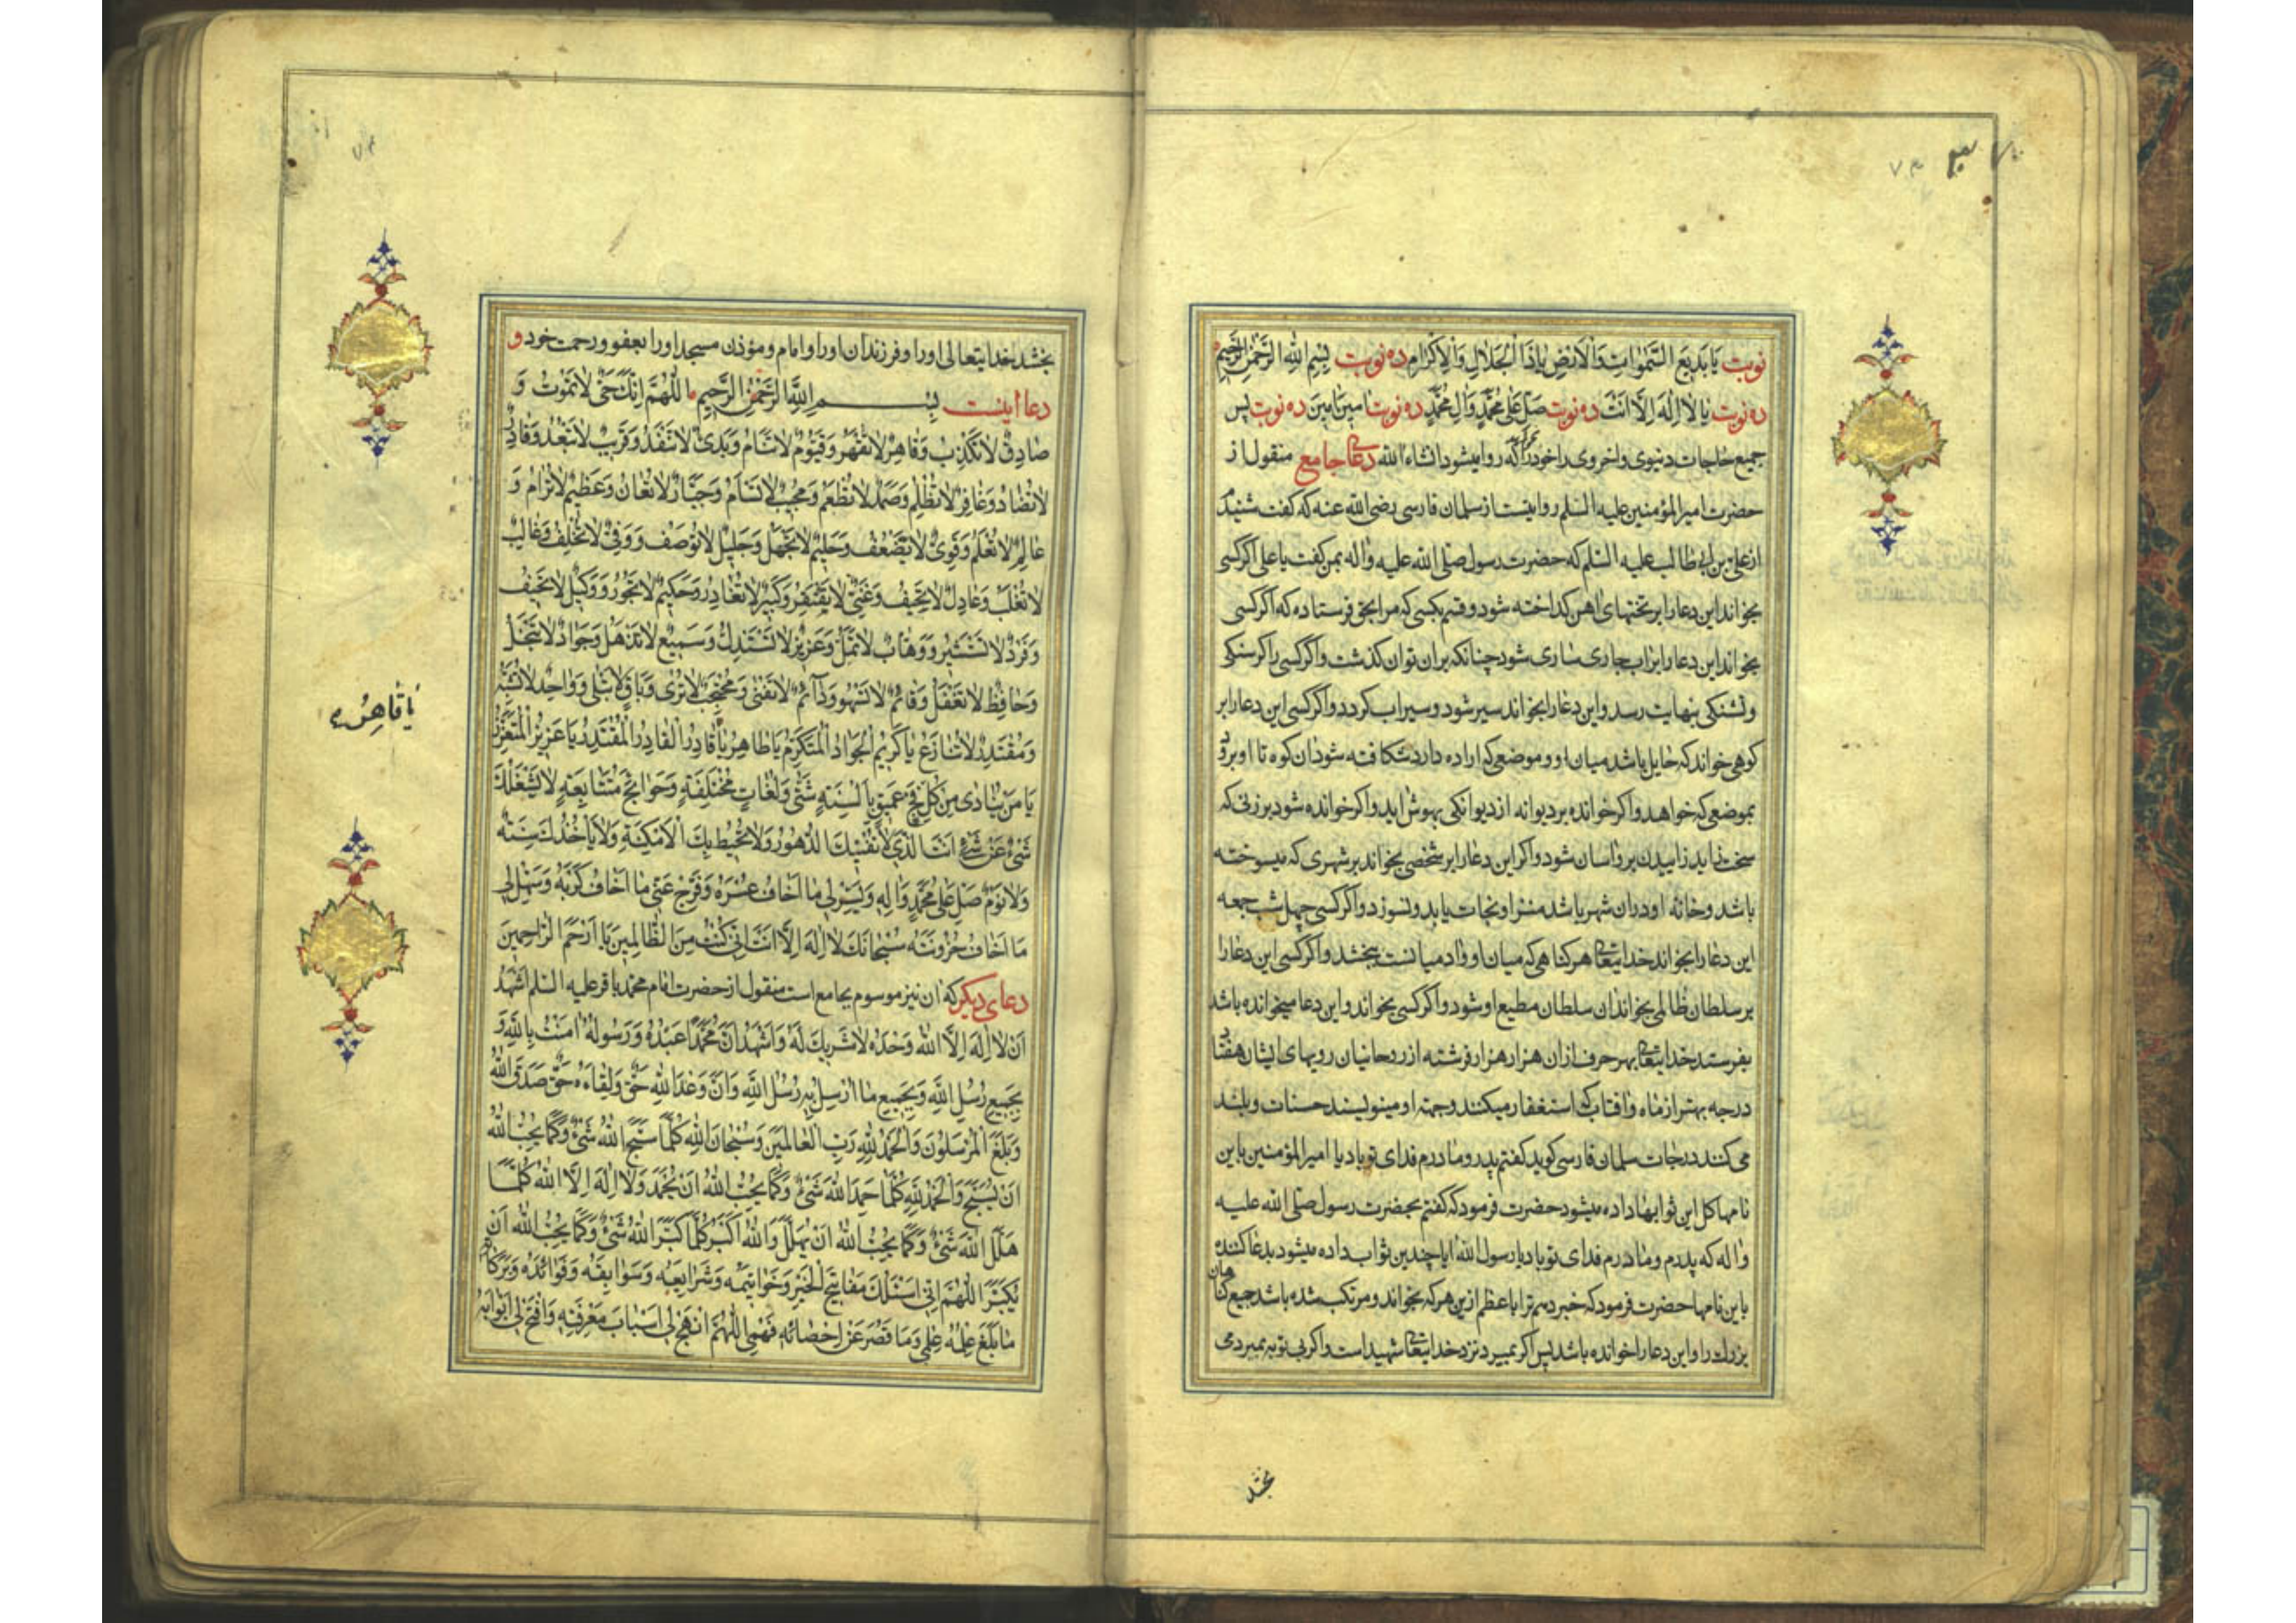 نوبت یَا بَدیعَ السَّمٰوٰاتِ وَالْاَرْضِ یٰا ذَا الْجَلٰالِ وَالْاِکْرٰامِ ده نوبت بِسْمِ اللهِ الرَّحْمٰنِ الرَّحیمِ
ده نوبت یٰا لٰا اِلٰهَ اِلَّا اَنْتَ ده نوبت صَلِّ عَلیٰ مُحَمَّدٍ وَاٰلِ مُحَمَّدٍ ده نوبت اٰمینَ اٰمینَ ده نوبت پس
جمیع حاجات دنیوی واخروی را خود را که روا میشود انشاء الله دعای جامع منقول از
حضرت امیر المؤمنین علیه السلم روایتست از سلمان فارسی رضی الله عنه که گفت شنیدم
از علی بن ابی طالب علیه السلم که حضرت رسول صلی الله علیه واله بمن گفت یا علی اگر کسی
بخواند این دعا را بر تختهای اهن کداخته شود و قسم بکسی که مرا بحق فرستاده که اگر کسی
بخواند این دعا را بر اب جاری ساری شود چنانکه بران توان کذشت واگر کسی را کرسنکی
وتشنکی بنهایت رسد واین دعا را بخواند سیر شود و سیراب کردد واگر کسی این دعا را بر
کوهی خواند که حایل باشد میان او و موضعی که اراده دارد شکافته شود ان کوه تا او برود
بموضعی که خواهد واکر خوانده بر دیوانه از دیوانکی بهوش اید واکر خوانده شود بر زنی که
سخت زاید زاییدن بر واسان شود واکر این دعا را بر شخصی بخواند بر شهری که میسوخته
باشد وخانه او در ان شهر باشد منزل او نجات یابد ونسوزد واگر کسی چهل شب جمعه
این دعا را بخواند خدایتعالی هر کناهی که میان او وادمیانست ببخشد واگر کسی این دعا را
بر سلطان ظالمی بخواند ان سلطان مطیع او شود واگر کسی بخواند واین دعا میخوانده باشد
بفرستد خدایتعالی بهر حرف از ان هزار هزار فرشته از روحانیان رویهای ایشان هفتاد
درجه بهتر از ماه وافتاب که استغفار میکنند وجهة او مینویسند حسنات وبلند
می کنند درجات سلمان فارسی کوید کفتم پدر ومادرم فدای تو باد یا امیر المؤمنین باین
نامها کل این ثوابها داده میشود حضرت فرمود که کفتم بحضرت رسول صلی الله علیه
واله که پدرم ومادرم فدای تو باد یا رسول الله ایا چندین ثواب داده میشود بدعا کننده
باین نامها حضرت فرمود که خبر دهم ترا باعظم ازین هر که بخواند ومرتکب شده باشد جمیع کناهان
بزرك را واین دعا را خوانده باشد پس اکر بمیرد نزد خدایتعالی شهید است واکر بی توبه بمیرد می
بخشد
بخشد خدایتعالی او را وفرزندان او را وامام ومؤذن مسجد او را بعفو ورحمت خود و
دعا اینست بِسْمِ اللّٰهِ الرَّحْمٰنِ الرَّحیمِ اَللّٰهُمَّ اِنَّكَ حَیٌّ لٰا تَمُوتُ وَ
صٰادِقٌ لٰا تَکْذِبُ وَقٰاهِرٌ لٰا تُقْهَرُ وَقَیُّومٌ لٰا تَنٰامُ وَبَدیٌٔ لٰا تَنْفَدُ وَقَریبٌ لٰا تَبْعُدُ وَقٰادِرٌ
لٰا تُضٰادُّ وَغٰافِرٌ لٰا تَظْلِمُ وَصَمَدٌ لٰا تُطْعَمُ وَمُجیبٌ لٰا تَسْأَمُ وَجَبّٰارٌ لٰا تُعٰانُ وَعَظیمٌ لٰا تُرٰامُ وَ
عٰالِمٌ لٰا تُعَلَّمُ وَقَوِیٌّ لٰا تَضْعُفُ وَحَلیمٌ لٰا تَجْهَلُ وَجَلیلٌ لٰا تُوصَفُ وَوَفِیٌّ لٰا تُخْلِفُ وَغٰالِبٌ
لٰا تُغْلَبُ وَعٰادِلٌ لٰا تَحیفُ وَغَنِیٌّ لٰا تَفْتَقِرُ وَکَبیرٌ لٰا تُغٰادِرُ وَحَکیمٌ لٰا تَجُورُ وَوَکیلٌ لٰا تَحیفُ
وَفَرْدٌ لٰا تَسْتَشیرُ وَوَهّٰابٌ لٰا تَمَلُّ وَعَزیزٌ لٰا تُسْتَذَلُّ وَسَمیعٌ لٰا تَذْهَلُ وَجَوٰادٌ لٰا تَبْخَلُ
وَحٰافِظٌ لٰا تَغْفَلُ وَقٰائِمٌ لٰا تَسْهُو وَدٰائِمٌ لٰا تَفْنیٰ وَمُحْتَجِبٌ لٰا تُریٰ وَبٰاقٍ لٰا تَبْلیٰ وَوٰاحِدٌ لٰا تُشْبَهُ
وَمُقْتَدِرٌ لٰا تُنٰازَعُ یٰا کَریمُ الْجَوٰادُ الْمُتَکَرِّمُ یٰا ظٰاهِرُ یٰا قٰادِرُ الْقٰادِرُ الْمُقْتَدِرُ یٰا عَزیزُ الْمُتَعَزِّزُ
یٰا قٰاهِرُ
یٰا مَنْ یُنٰادیٰ مِنْ کُلِّ فَجٍّ عَمیقٍ بِاَلْسِنَةٍ شَتّیٰ وَلُغٰاتٍ مُخْتَلِفَةٍ وَحَوٰائِجَ مُتَتٰابِعَةٍ لٰا یَشْغَلُكَ
شَیْءٌ عَنْ شَیْءٍ اَنْتَ الَّذی لٰا تُفْنیكَ الدُّهُورُ وَلٰا تُحیطُ بِكَ الْاَمْکِنَةُ وَلٰا یَأْخُذُكَ سِنَةٌ
وَلٰا نَوْمٌ صَلِّ عَلیٰ مُحَمَّدٍ وَاٰلِهِ وَیَسِّرْ لی مٰا اَخٰافُ عُسْرَهُ وَفَرِّجْ عَنّی مٰا اَخٰافُ کَرْبَهُ وَسَهِّلْ لی
مٰا اَخٰافُ حُزُونَتَهُ سُبْحٰانَكَ لٰا اِلٰهَ اِلَّا اَنْتَ اِنّی کُنْتُ مِنَ الظّٰالِمینَ یٰا اَرْحَمَ الرّٰاحِمینَ
دعای دیکر که ان نیز موسوم بجامع است منقول از حضرت امام محمد باقر علیه السلم اَشْهَدُ
اَنْ لٰا اِلٰهَ اِلَّا اللّٰهُ وَحْدَهُ لٰا شَریكَ لَهُ وَاَشْهَدُ اَنَّ مُحَمَّدًا عَبْدُهُ وَرَسُولُهُ اٰمَنْتُ بِاللّٰهِ وَ
بِجَمیعِ رُسُلِ اللّٰهِ وَبِجَمیعِ مٰا اُرْسِلَ بِهِ رُسُلُ اللّٰهِ وَاَنَّ وَعْدَ اللّٰهِ حَقٌّ وَلِقٰاءَهُ حَقٌّ صَدَقَ اللّٰهُ
وَبَلَّغَ الْمُرْسَلُونَ وَالْحَمْدُ لِلّٰهِ رَبِّ الْعٰالَمینَ وَسُبْحٰانَ اللّٰهِ کُلَّمٰا سَبَّحَ اللّٰهَ شَیْءٌ وَکَمٰا یُحِبُّ اللّٰهُ
اَنْ یُسَبَّحَ وَالْحَمْدُ لِلّٰهِ کُلَّمٰا حَمِدَ اللّٰهَ شَیْءٌ وَکَمٰا یُحِبُّ اللّٰهُ اَنْ یُحْمَدَ وَلٰا اِلٰهَ اِلَّا اللّٰهُ کُلَّمٰا
هَلَّلَ اللّٰهَ شَیْءٌ وَکَمٰا یُحِبُّ اللّٰهُ اَنْ یُهَلَّلَ وَاللّٰهُ اَکْبَرُ کُلَّمٰا کَبَّرَ اللّٰهَ شَیْءٌ وَکَمٰا یُحِبُّ اللّٰهُ اَنْ
یُکَبَّرَ اَللّٰهُمَّ اِنّی اَسْئَلُكَ مَفٰاتیحَ الْخَیْرِ وَخَوٰاتیمَهُ وَشَرٰایِعَهُ وَسَوٰابِقَهُ وَفَوٰائِدَهُ وَبَرَکٰاتِهِ
مٰا بَلَغَ عِلْمَهُ عِلْمی وَمٰا قَصُرَ عَنْ اِحْصٰائِهِ فَهْمی اَللّٰهُمَّ انْهَجْ لی اَسْبٰابَ مَعْرِفَتِهِ وَافْتَحْ لی اَبْوٰابَهُ